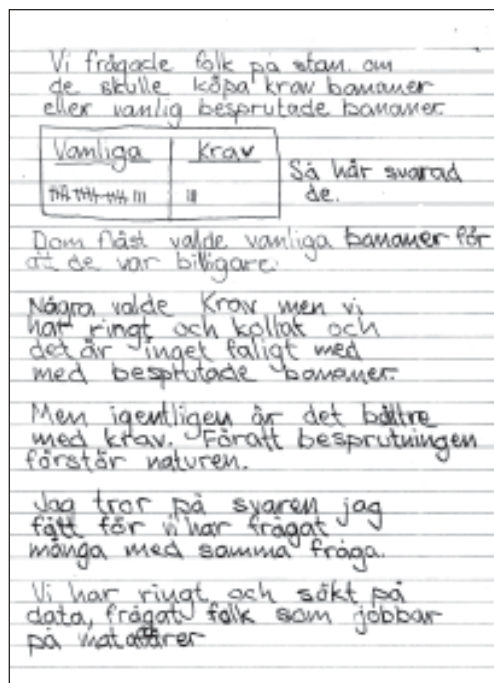 Vi frågade folk på stan om
de skulle köpa krav bananer
eller vanlig besprutade bananer.
Vanliga Krav
Så här svarad
de.
Dom fläst valde vanliga bananer för
att de var billigare.
Några valde Krav men vi
har ringt och kollat och
det är inget faligt med
med besprutade bananer.
Men igentligen är det bättre
med krav. Föratt besprutningen
förstör naturen.
Jag tror på svaren jag
fått för vi har frågat
många med samma fråga.
Vi har ringt och sökt på
data, frågat folk som jobbar
på mataffärer